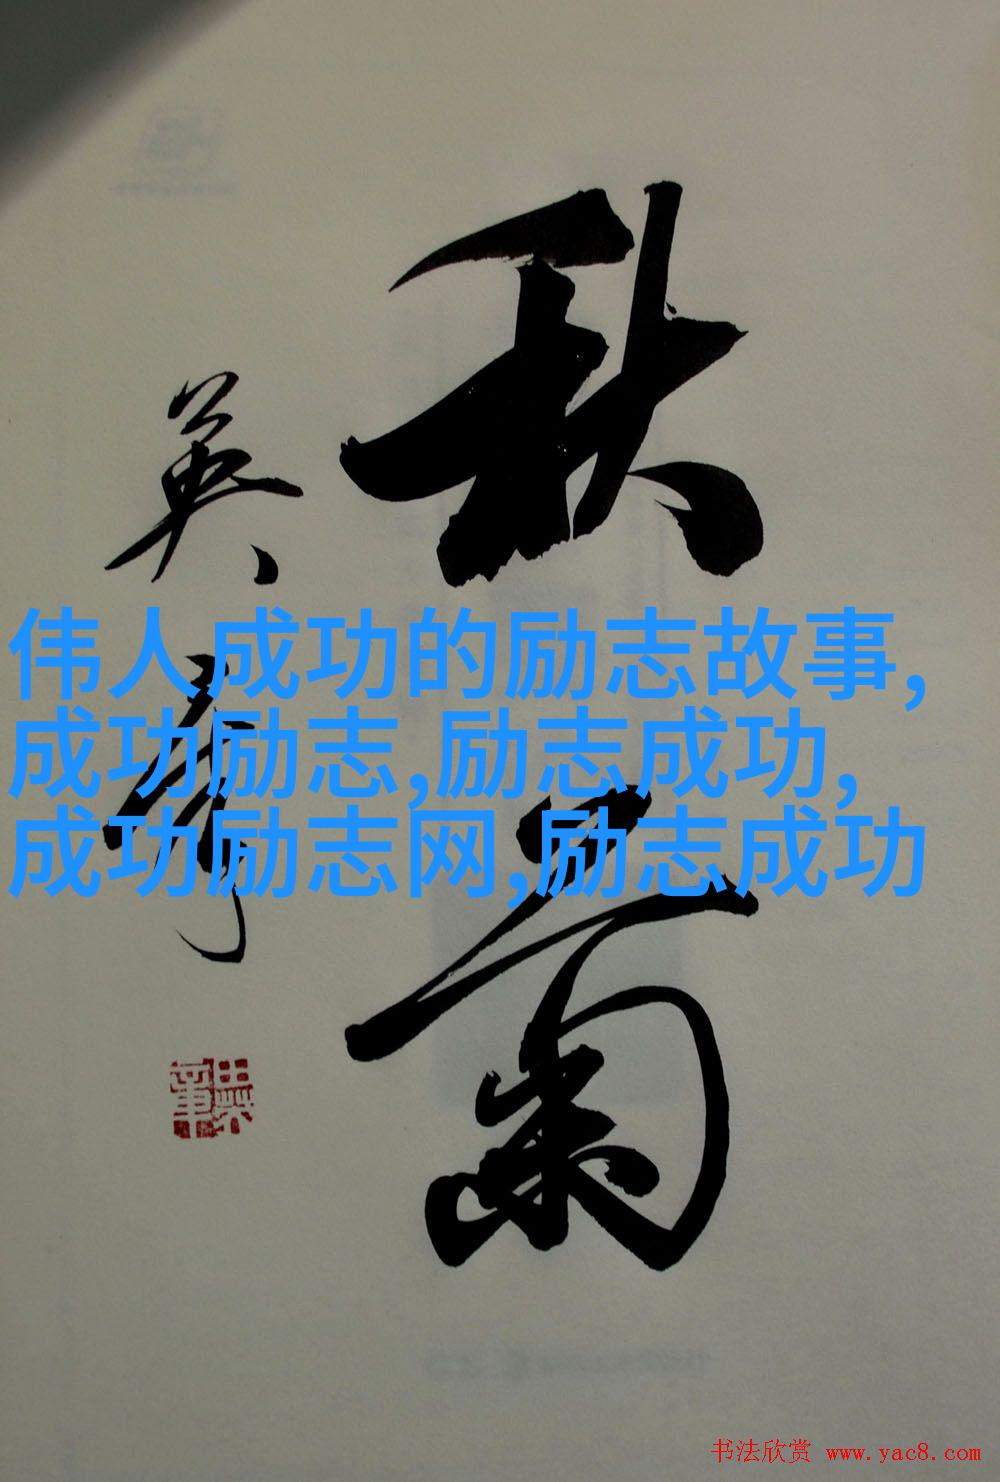 秋
菊
英
伟人成功的励志故事,
成功励志,励志成功,
成功励志网,励志成功
书法欣赏 www.yac8.com